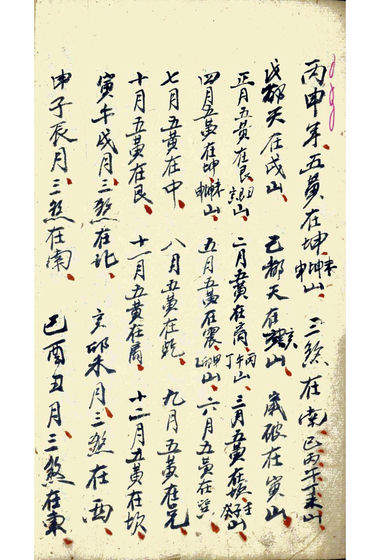 丙申年五黃在坤未坤申山 三煞在南巳丙午未山
戊都天在戌山 己都天在亥山 歲破在寅山
正月五黃在艮丑艮寅山 二月五黃在离丙午丁山 三月五黃在坎壬子癸山
四月五黃在坤未坤申山 五月五黃在震甲卯乙山 六月五黃在巽
七月五黃在中 八月五黃在乾 九月五黃在兌
十月五黃在艮 十一月五黃在离 十二月五黃在坎
寅午戌月三煞在北 亥卯未月三煞在西
申子辰月三煞在南 巳酉丑月三煞在東